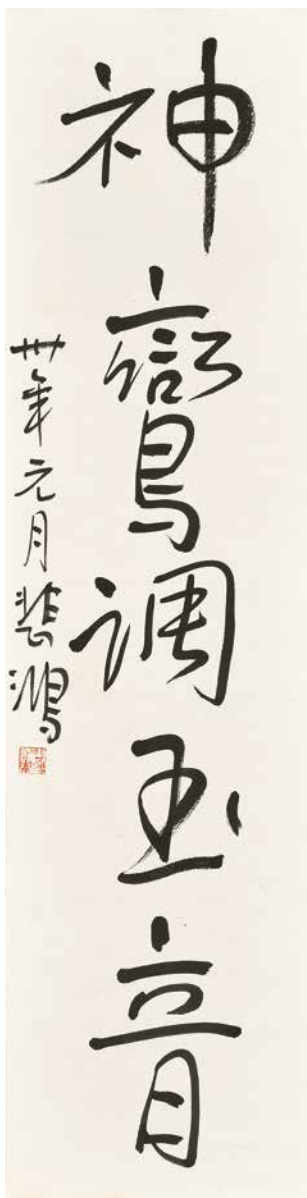 神鸞調玉音
卅年元月悲鴻